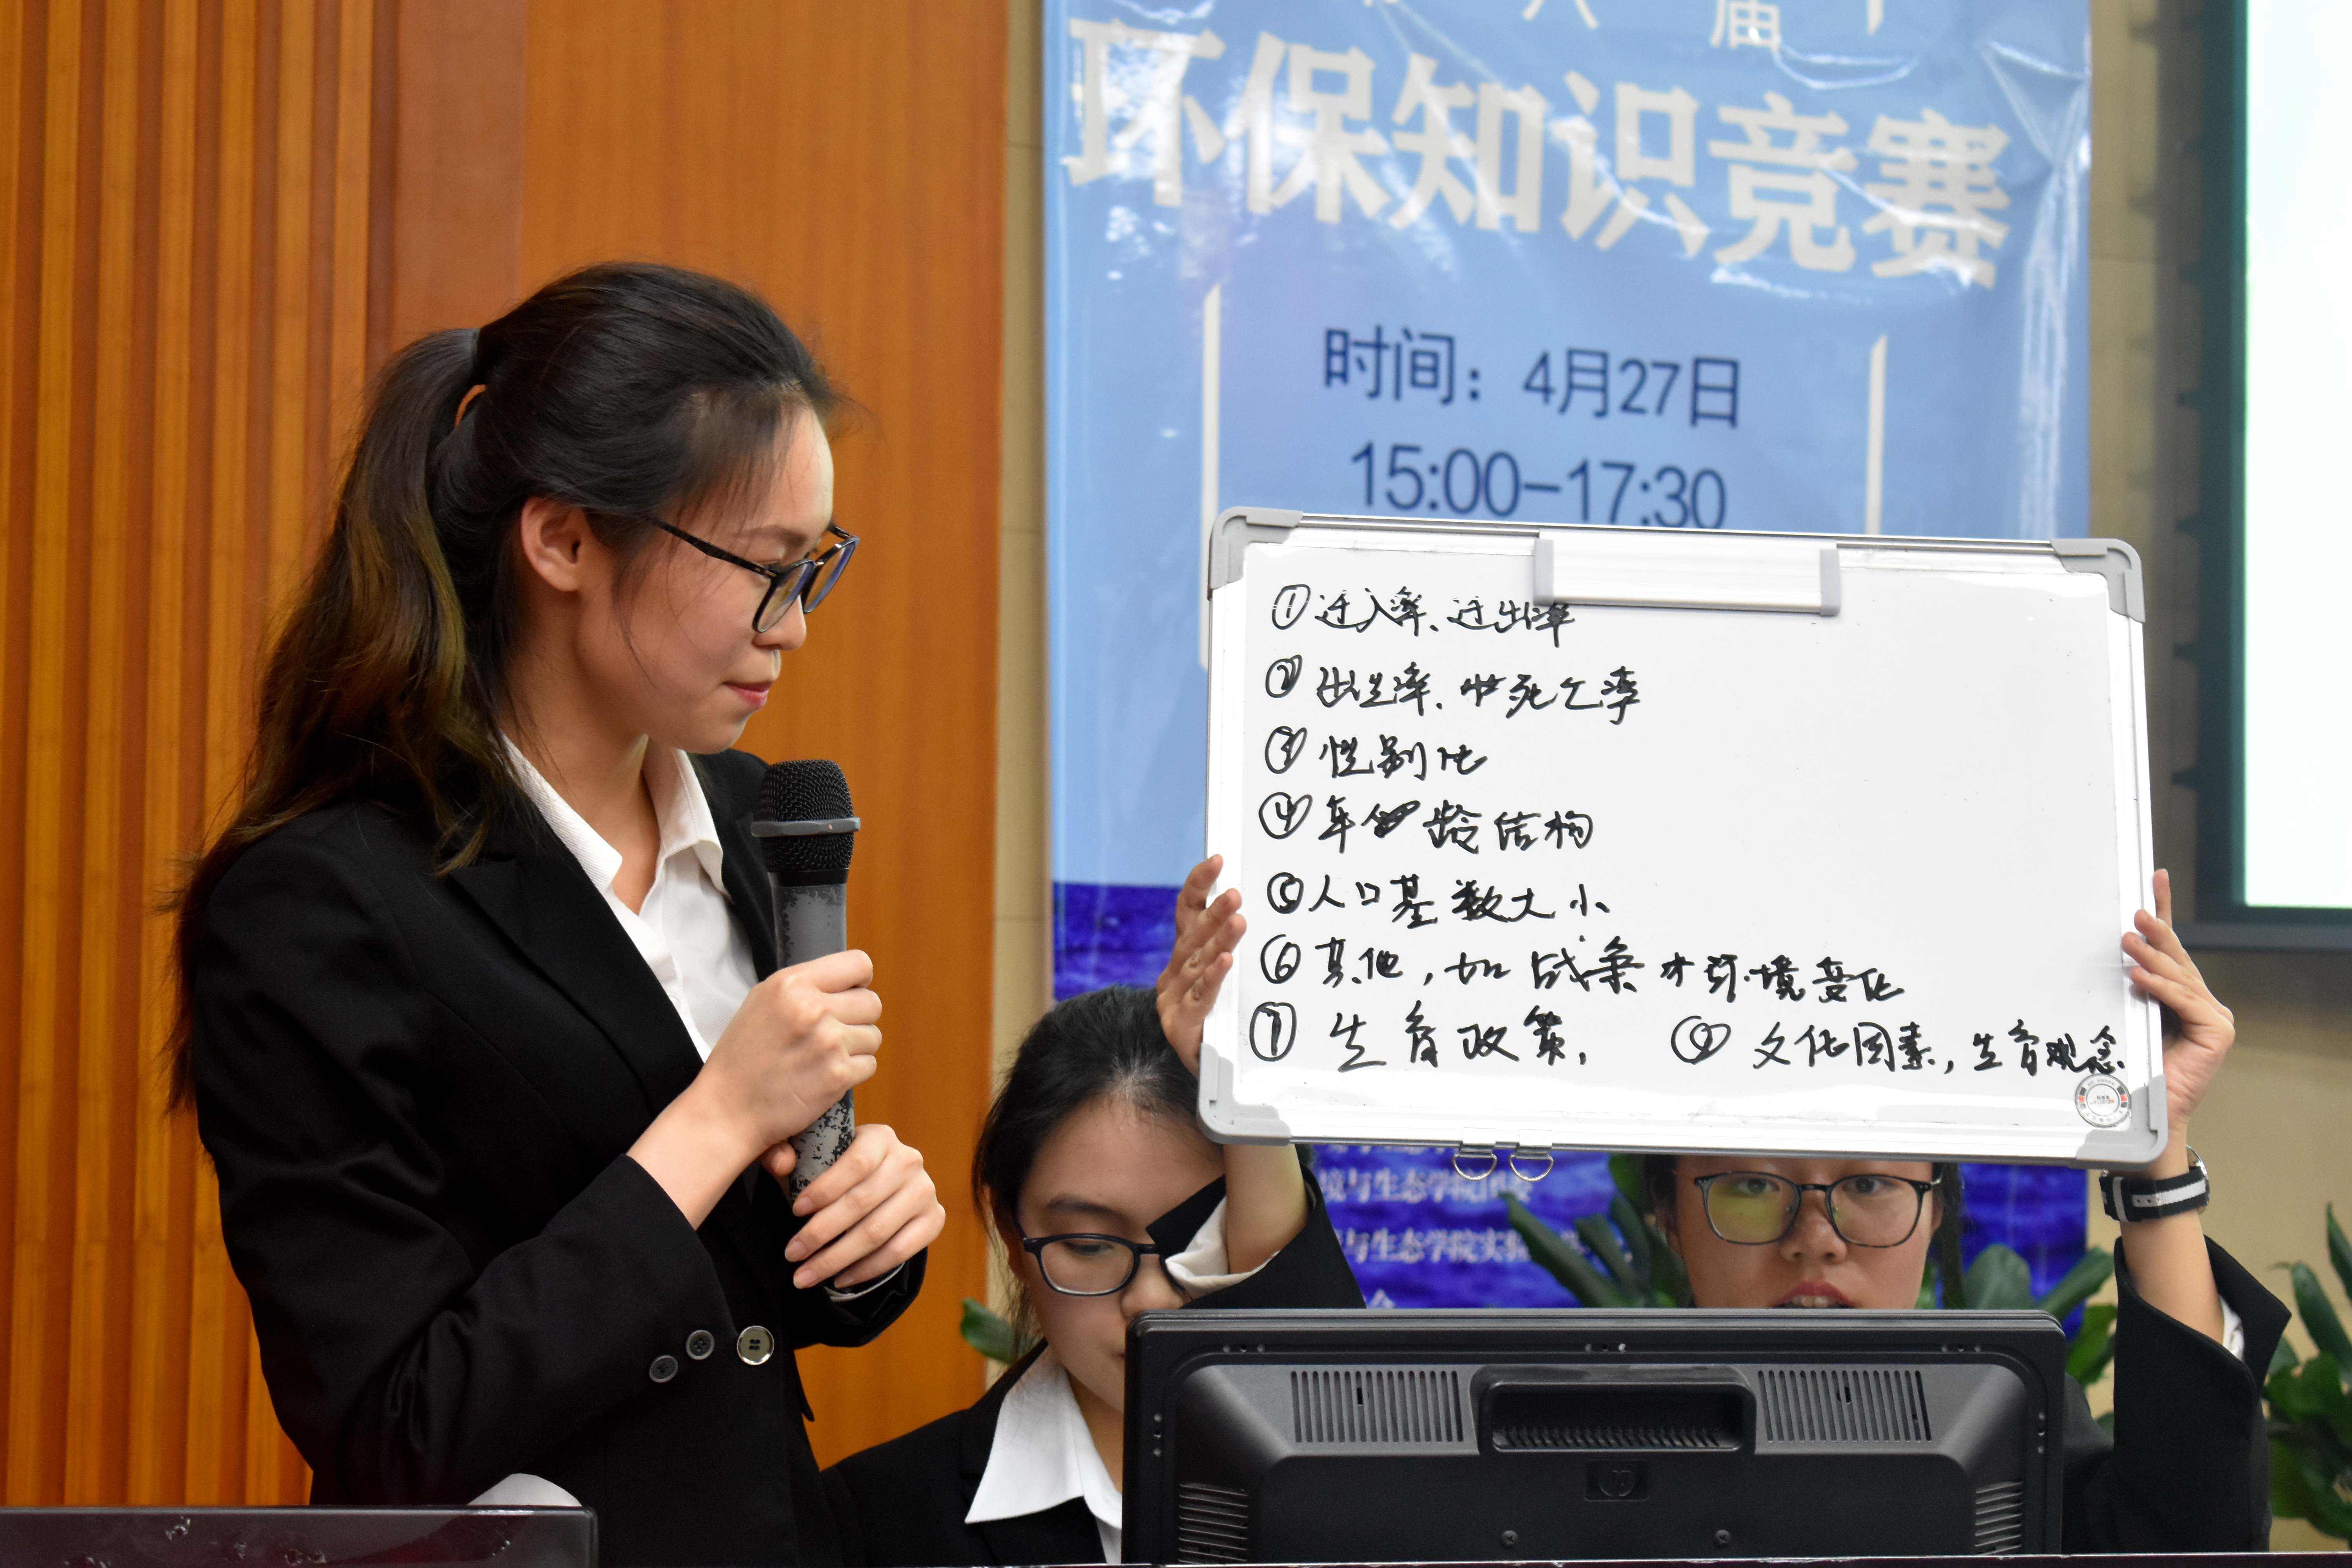 八届
环保知识竞赛
时间：4月27日
15:00-17:30
①迁入率、迁出率
②出生率、死亡率
③性别比
④年龄结构
⑤人口基数大小
⑥其他，如战争 环境变化
⑦生育政策， ⑧文化因素，生育观念
境与生态学院团委
与生态学院实验
hp